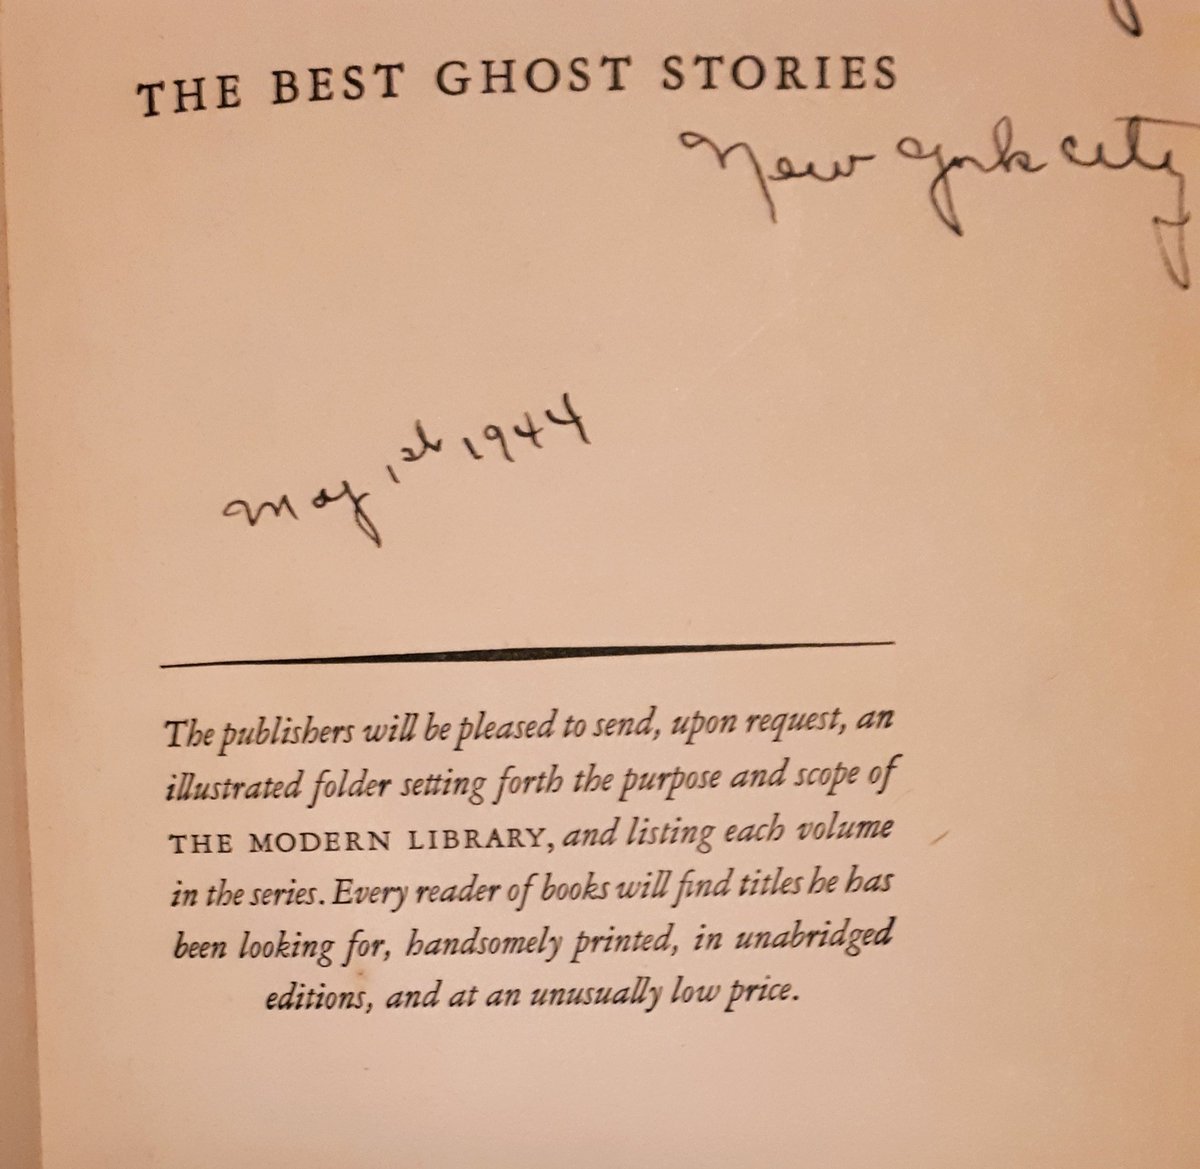 THE BEST GHOST STORIES
New York City
May 1st 1944
The publishers will be pleased to send, upon request, an
illustrated folder setting forth the purpose and scope of
THE MODERN LIBRARY, and listing each volume
in the series. Every reader of books will find titles he has
been looking for, handsomely printed, in unabridged
editions, and at an unusually low price.